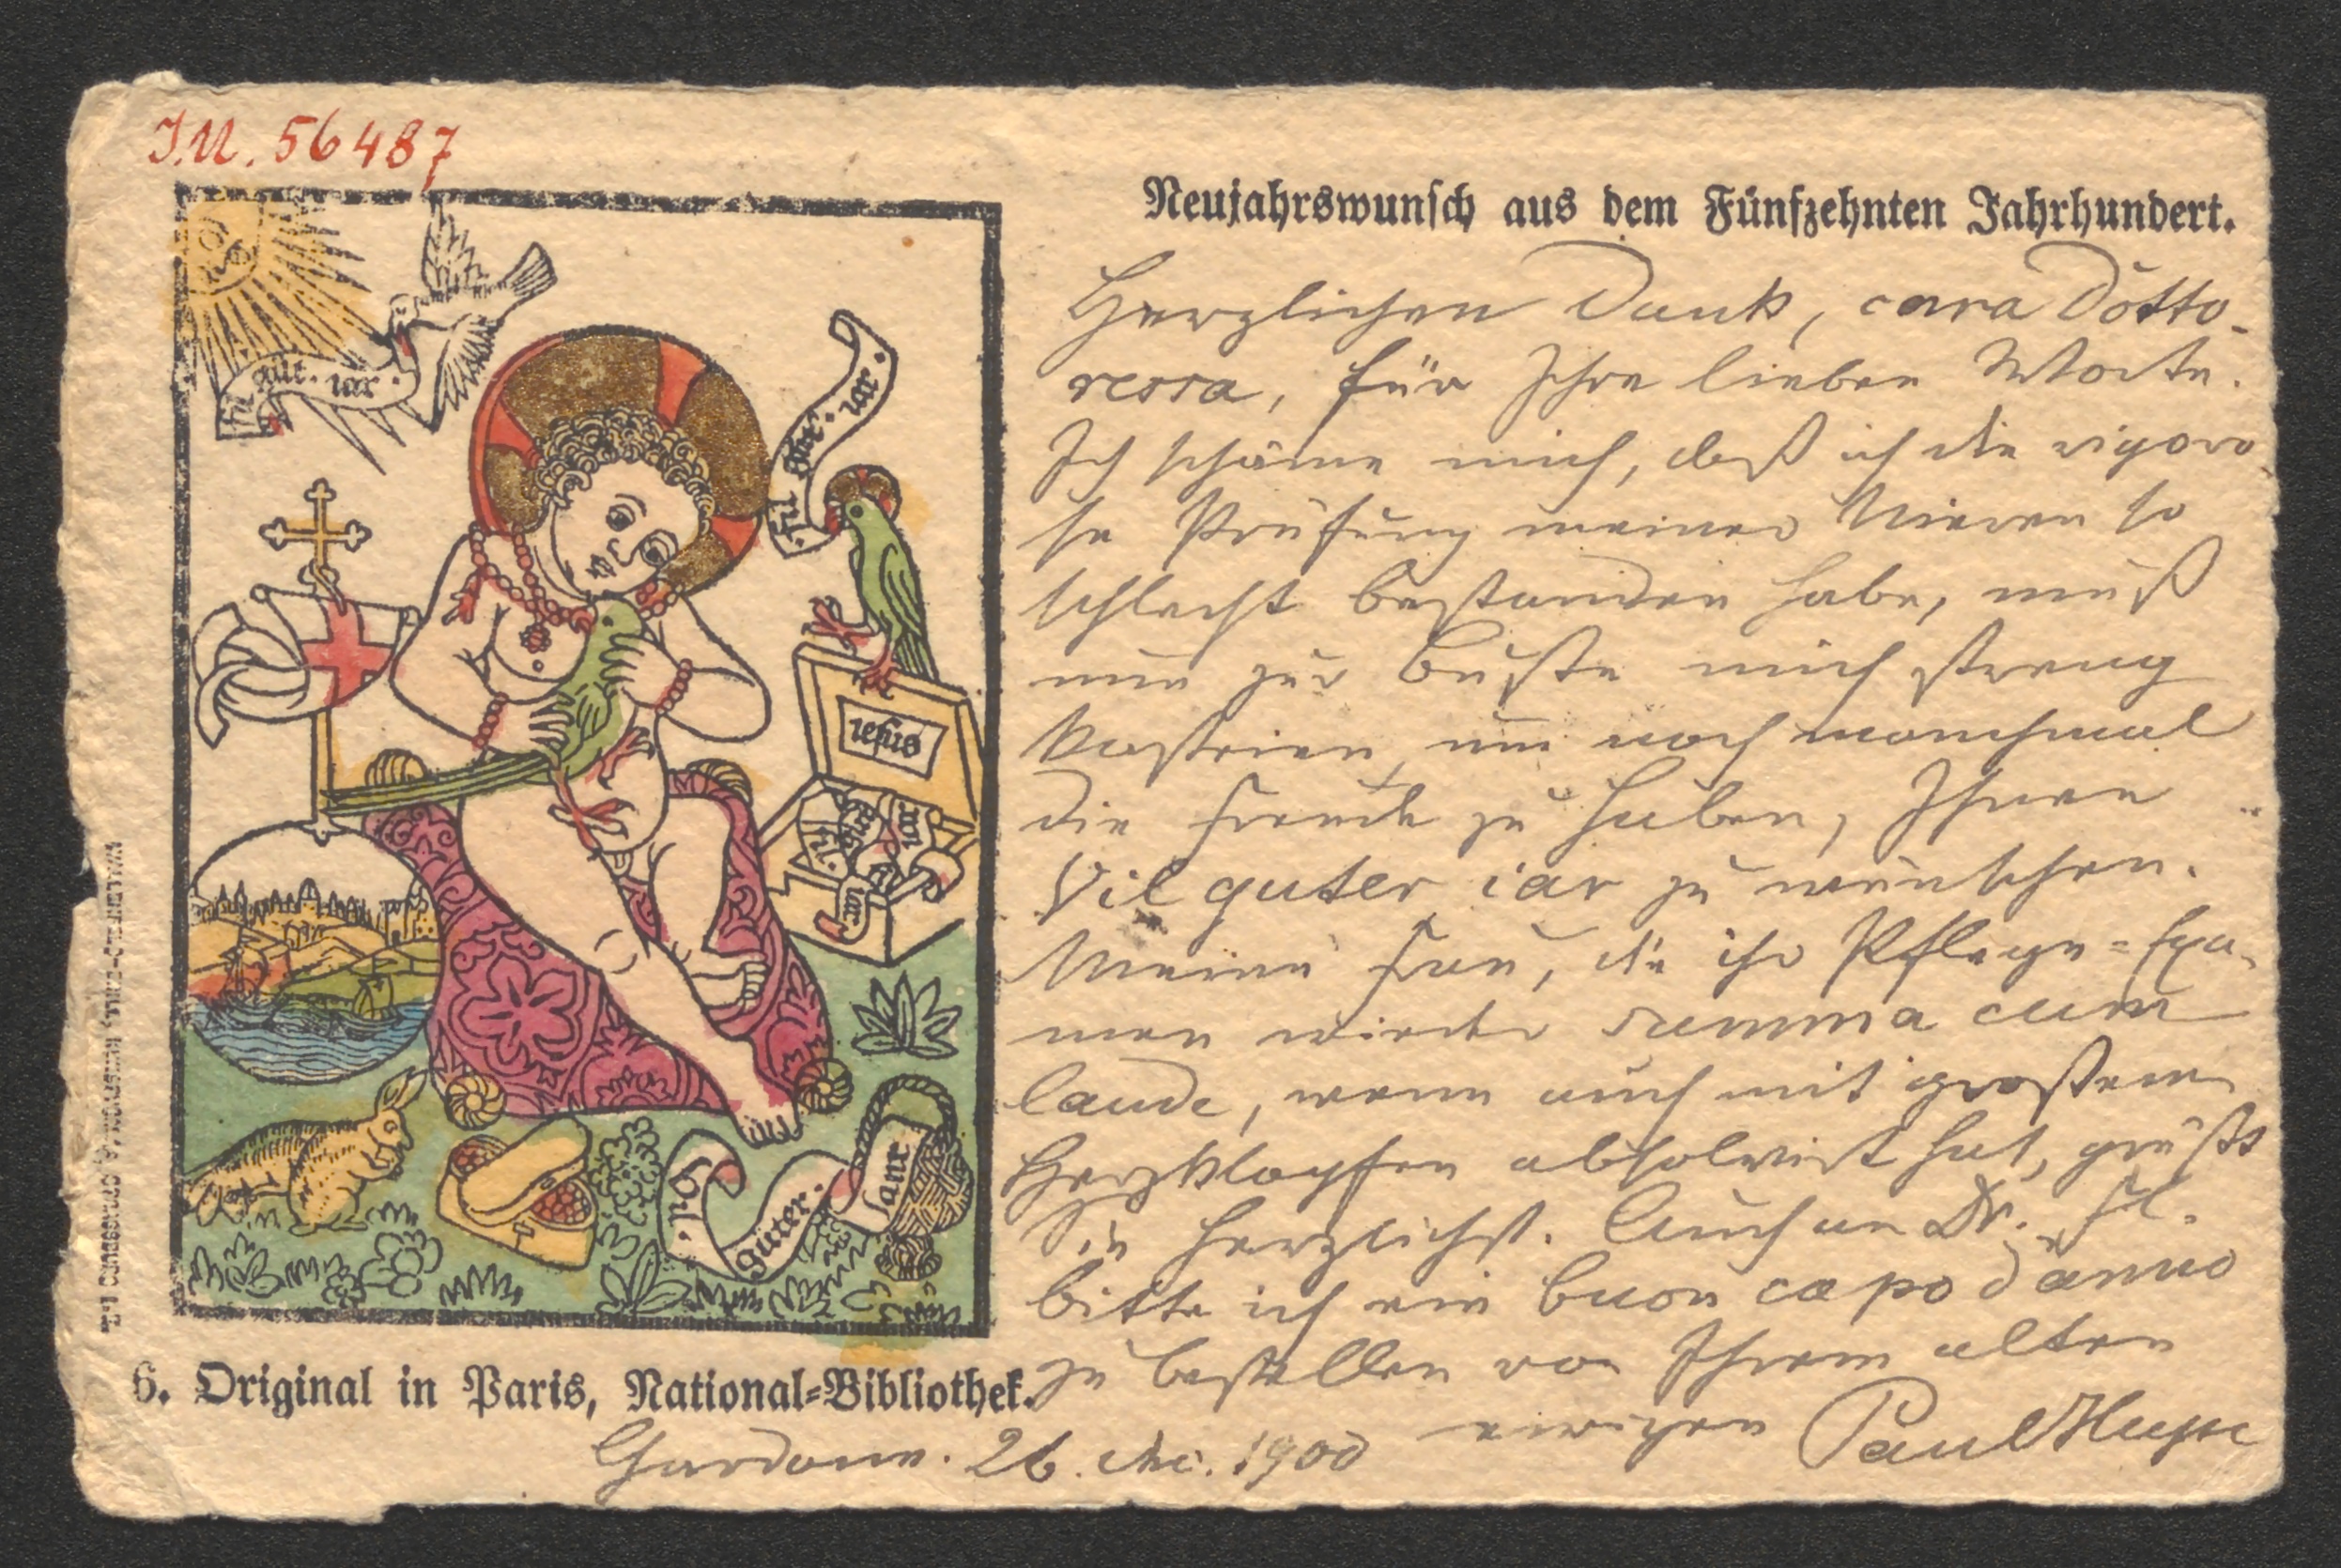 I.N. 56487
Neujahrswunsch aus dem Fünfzehnten Jahrhundert.
fil güt. iar.
Fil. gůt. iar.
iesus
iar
iar
Vil.
güter.
iar
Herzlichen Dank, cara Dotto-
ressa, für Ihre lieben Worte.
Ich schäme mich, daß ich die rigoro-
se Prüfung meiner Nieren so
schlecht bestanden habe, muß
nun zur Buße mich streng
kasteien um noch manchmal
die Freude zu haben, Ihnen
Vil guter iar zu wünschen.
Meine Frau, die ihr Pflege-Exa-
men wieder summa cum
laude, wenn auch mit großem
Herzklopfen absolvirt hat, grüßt
Sie herzlichst. Auch an Dr. Fl.
bitte ich ein buon capo d'anno
zu bestellen von Ihrem alten
ewigen Paul Heyse
6. Original in Paris, National-Bibliothek.
Gardone. 26. Dec. 1900